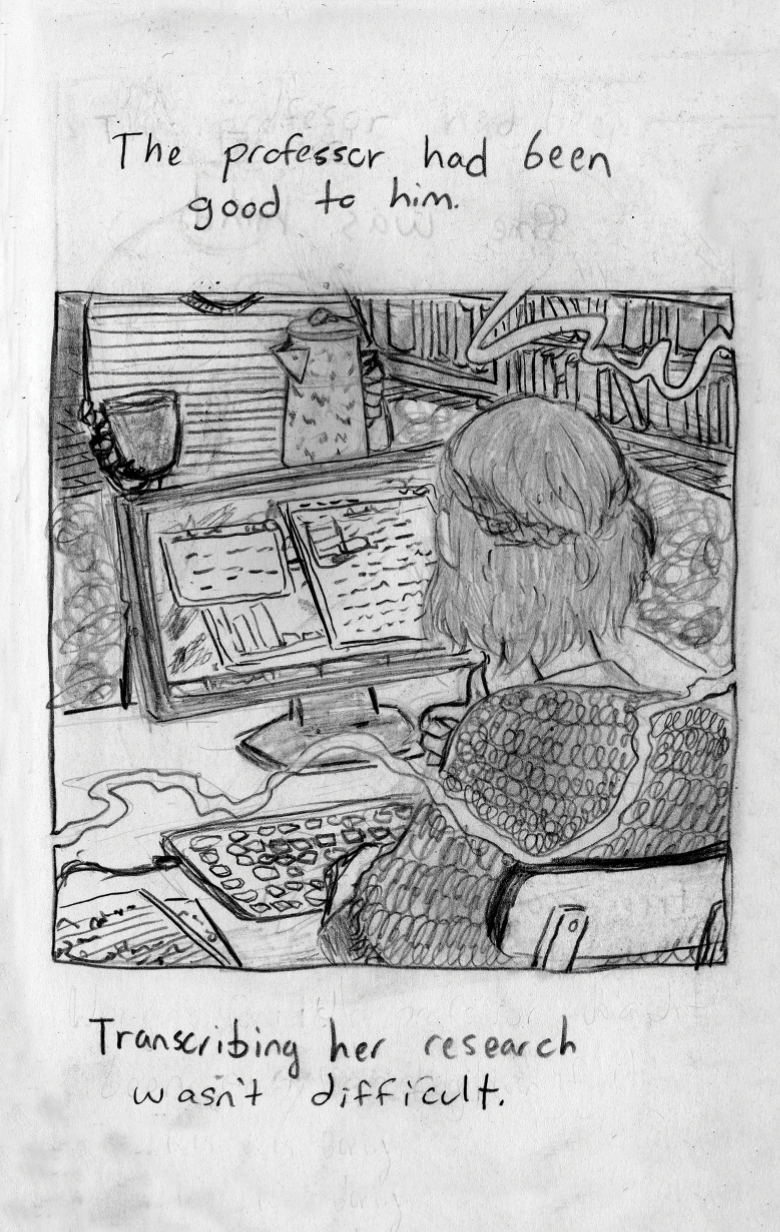 The professor had been
good to him.
Transcribing her research
wasn't difficult.